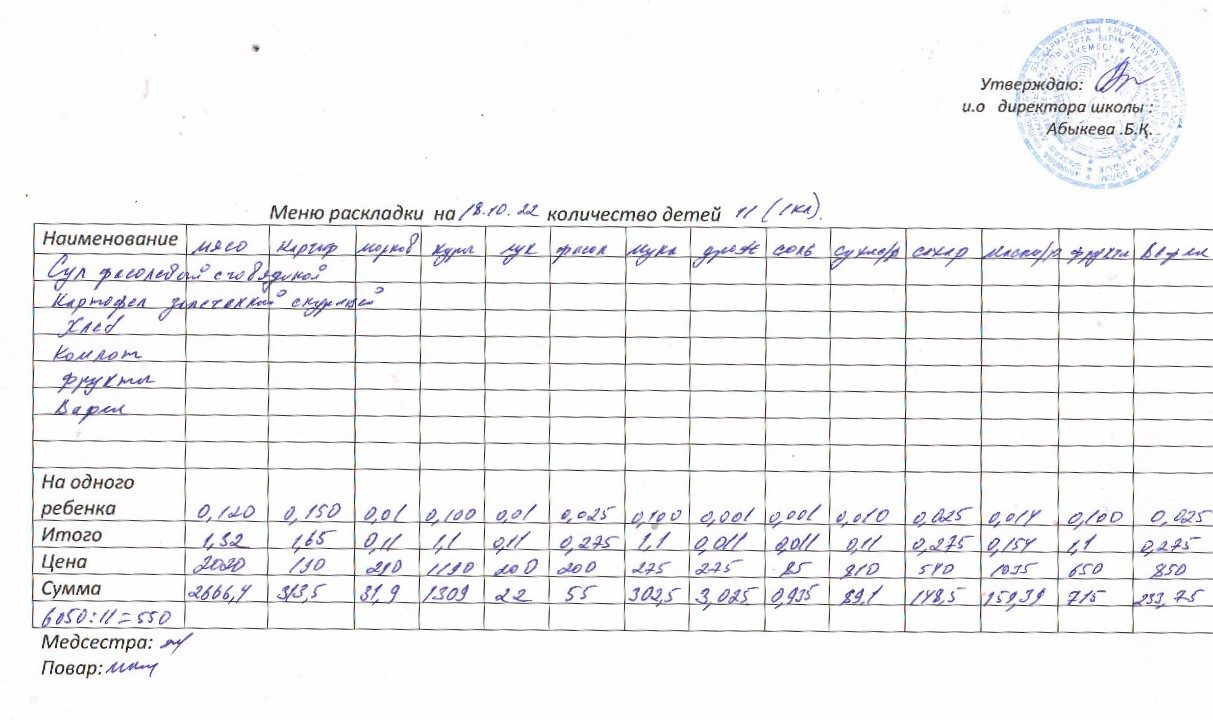 Утверждаю:
и.о директора школы :
Абыкева .Б.Қ.
Меню раскладки на 18.10.22 количество детей 11 (1кл).
Наименование мясо картоф морков куры лук фасол мука дрож соль сухоф/р сахар масло/р фрукты Вафли
Суп фасолевый с говядиной
Картофел запеченный с курицей
Хлеб
Компот
Фрукты
Вафли
На одного
ребенка 0,120 0,150 0,01 0,100 0,01 0,025 0,100 0,001 0,001 0,010 0,025 0,014 0,100 0,025
Итого 1,32 1,65 0,11 1,1 0,11 0,275 1,1 0,011 0,011 0,11 0,275 0,154 1,1 0,275
Цена 2020 190 290 1190 200 200 275 275 85 810 540 1035 650 850
Сумма 2666,4 313,5 31,9 1309 22 55 302,5 3,025 0,935 89,1 148,5 159,39 715 233,75
6050:11=550
Медсестра:
Повар: